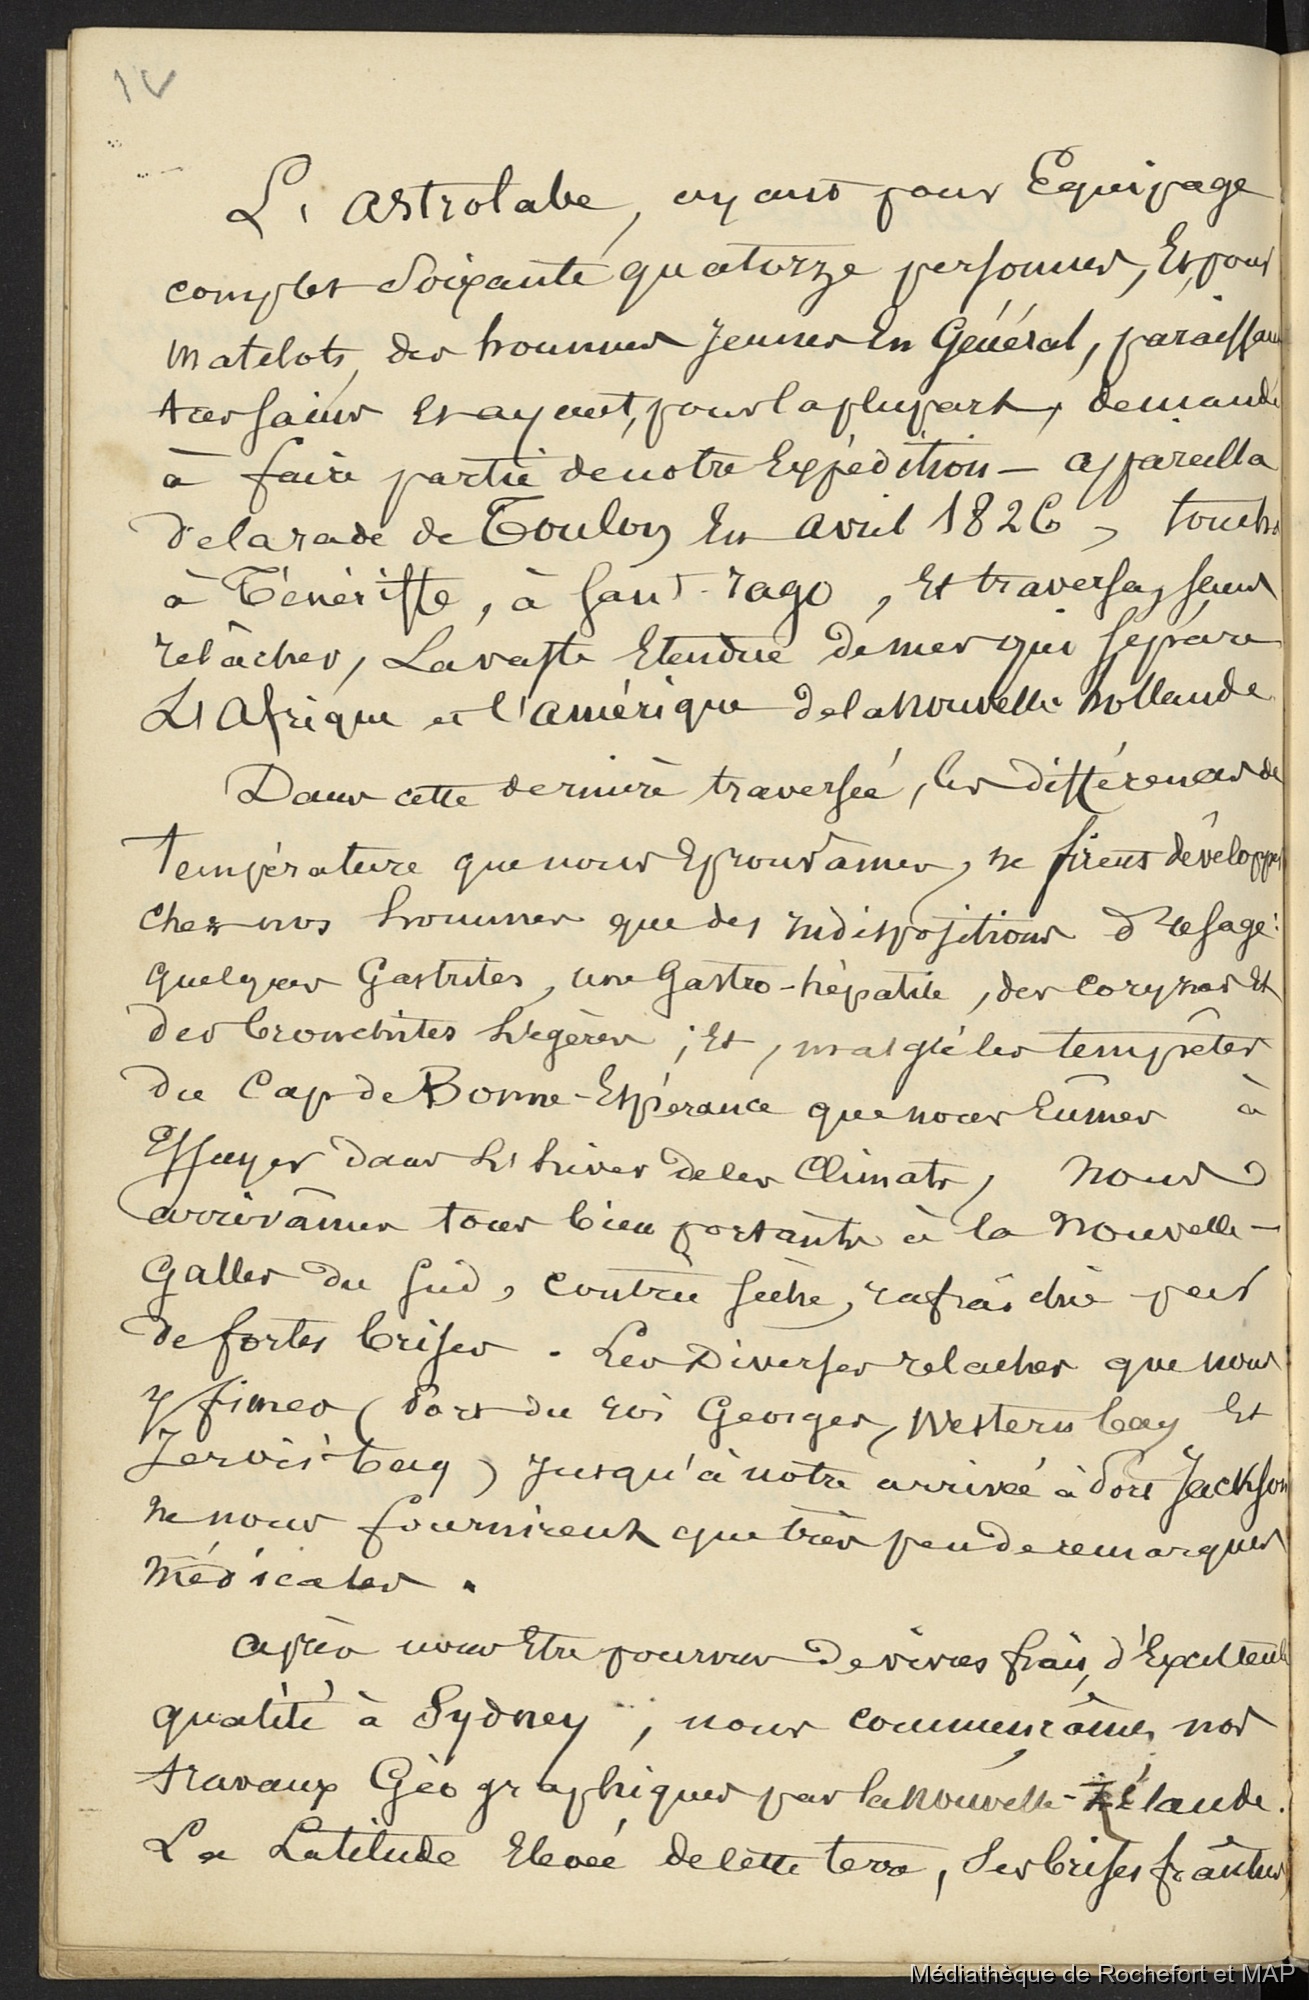 IV
L'astrolabe, ayant pour Equipage
complet Soixante quatorze personnes, Et, pour
matelots, des hommes jeunes En Général, paraissant
très sains Et ayant, pour la plupart, demandé
à faire partie de notre Expédition — appareilla
de la rade de Toulon En avril 1826, toucha
à Ténériffe, à Sant-Iago, Et traversa, sans
relâcher, La vaste Etendue de mer qui sépare
L'Afrique et l'amérique de la nouvelle hollande
Dans cette dernière traversée, les différences de
température que nous Eprouvâmes, ne firent développer
chez nos hommes que des indispositions
quelques Gastrites, une Gastro-hépatite, des coryzas Et
des bronchites légères ; Et, malgré les tempêtes
du Cap de Bonne-Espérance que nous Eûmes à
Essuyer dans l'hiver de les Climats, nous
arrivâmes tous bien portants à la nouvelle-
Galles du Sud, contrée sèche, rafraîchie par
de fortes brises. Les Diverses relaches que nous
y fimes (Port du roi Georges, Western bay Et
Jervis-bay) jusqu'à notre arrivée à Port Jackson
ne nous fournirent que très peu de remarques
médicales.
après nous Etre pourvus de vivres frais, d'Excellente
qualité à Sydney, nous commençâmes nos
travaux Géographiques par la nouvelle-Zélande.
La Latitude Elevée de cette terre, Ses brises fraîches
Médiathèque de Rochefort et MAP